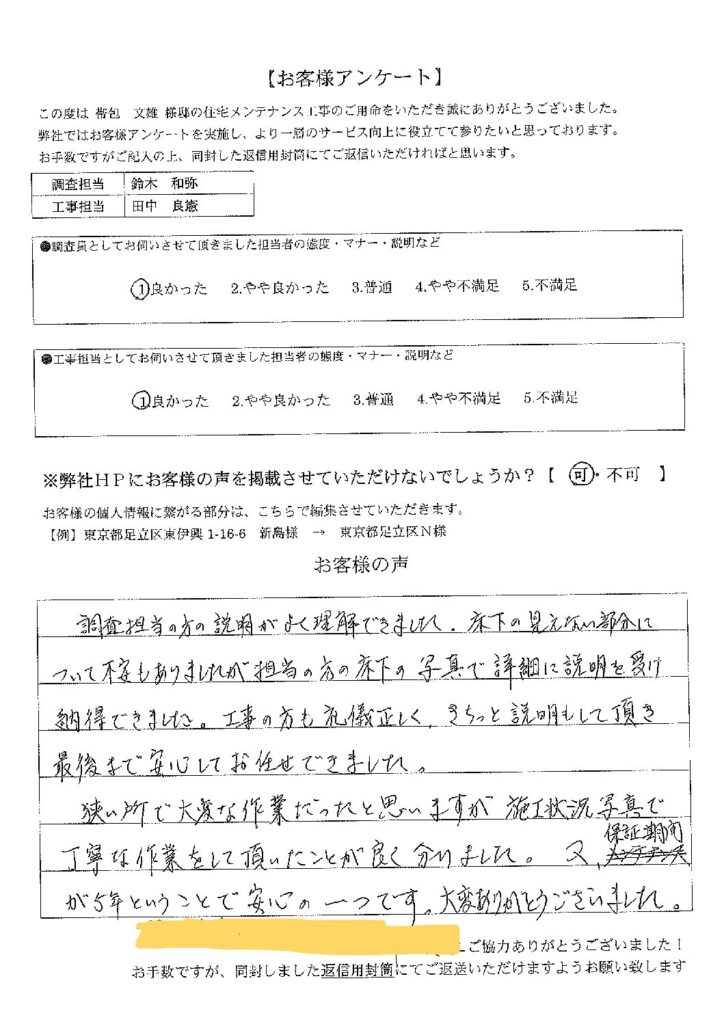 【お客様アンケート】
この度は 帯包　文雄 様邸の住宅メンテナンス工事のご用命をいただき誠にありがとうございました。
弊社ではお客様アンケートを実施し、より一層のサービス向上に役立てて参りたいと思っております。
お手数ですがご記入の上、同封した返信用封筒にてご返信いただければと思います。
調査担当　鈴木　和弥
工事担当　田中　良憲
●調査員としてお伺いさせて頂きました担当者の態度・マナー・説明など
①良かった　2.やや良かった　3.普通　4.やや不満足　5.不満足
●工事担当としてお伺いさせて頂きました担当者の態度・マナー・説明など
①良かった　2.やや良かった　3.普通　4.やや不満足　5.不満足
※弊社HPにお客様の声を掲載させていただけないでしょうか？【　可・不可　】
お客様の個人情報に繋がる部分は、こちらで編集させていただきます。
【例】東京都足立区東伊興 1-16-6　新島様　→　東京都足立区N様
お客様の声
調査担当の方の説明がよく理解できました。床下の見えない部分に
ついて不安もありましたが担当の方の床下の写真で詳細に説明を受け
納得できました。工事の方も礼儀正しく、きちっと説明もして頂き
最後まで安心してお任せできました。
狭い所で大変な作業だったと思いますが施工状況写真で
丁寧な作業をして頂いたことが良く分りました。又、保証期間
が5年ということで安心の一つです。大変ありがとうございました。
ご協力ありがとうございました！
お手数ですが、同封しました返信用封筒にてご返送いただけますようお願い致します